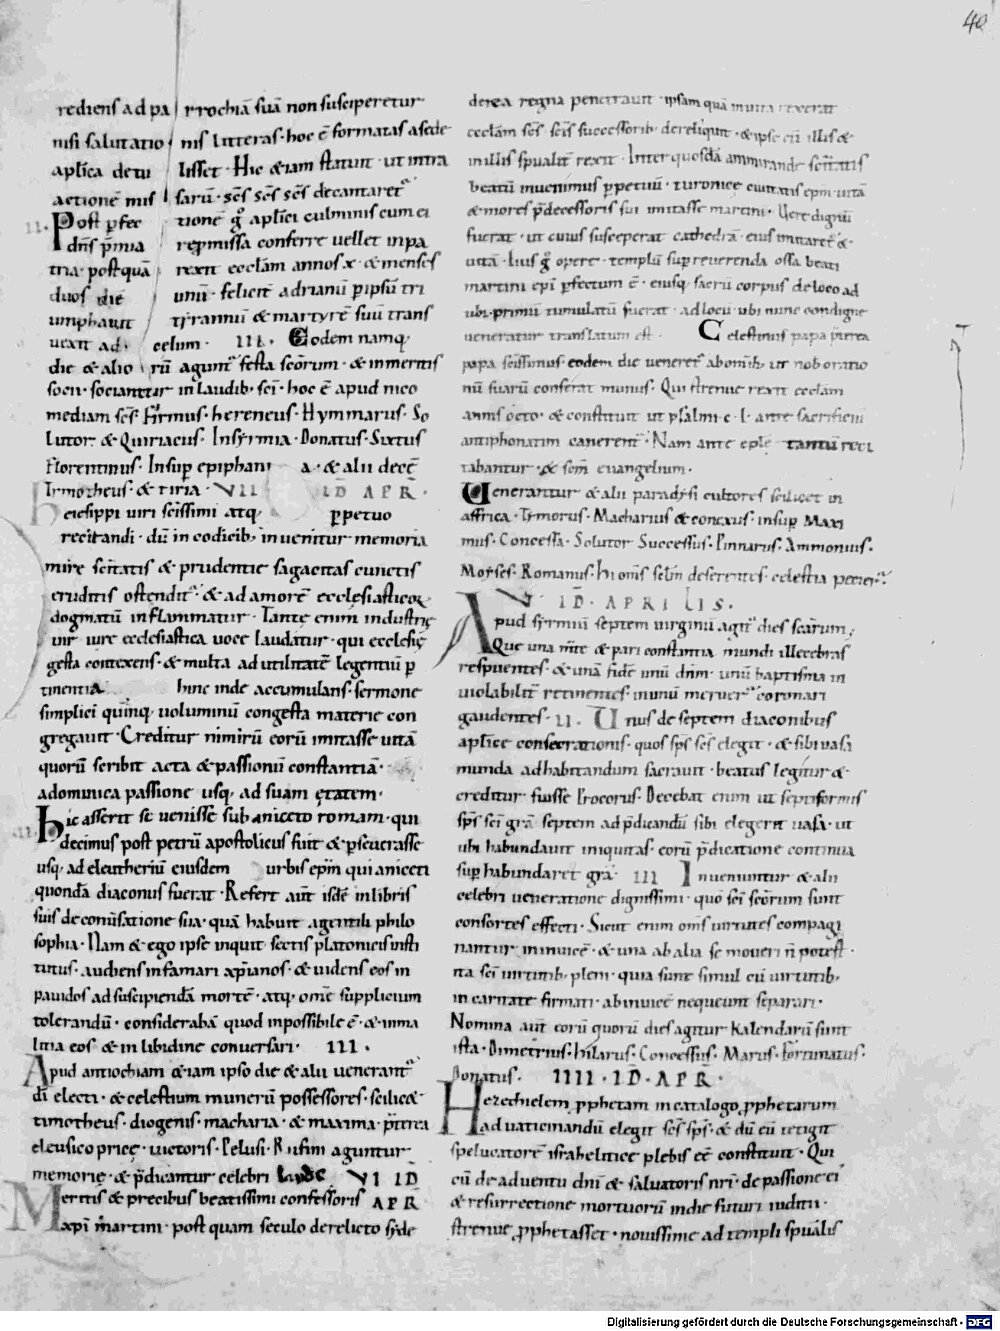 40
rediens ad parrochiā suā non susciperetur
nisi salutationis litteras· hoc ē formatas a sede
apl̄ica detulisset· Hic & iam statuit· ut intra
actionē missarū· sc̄s sc̄s sc̄s decantaret᷑
II. Post p̱fectionē g̊ apl̄ici culminis cum ei
dn̄s p̄mia repmissa conferre uellet in patria·
postquā rexit eccl̄am annos x· & menses
duos die unū· felicit̄ adrianū p̱ ipsū tri
umphauit tẏrannū & martyrē suū trans
uexit ad celum· III. Eodem namq;
die & aliorū agunt᷑ festa sc̄orum· & inmeritis
socii· sociantur in laudib; sc̄i· hoc ē apud nico
mediam sc̄s Firmus· hereneus· Hymmarus· So
lutor· & Quiriacus· In sẏrmia· Donatus· Sixtus
Florentinus· Insup̱ epiphania· & alii decē
Tymotheus· & tiria· VII ID APR̄·
heiesippi uiri sc̄issimi atq; p̱petuo
recitandi· dū in codicib; inuenitur memoria
mire sc̄itatis & prudentie sagacitas cunctis
eruditis ostendit᷑· & ad amorē ecclesiasticoꝝ
dogmatū inflammatur· Tante enim industrię
uir iure ecclesiastica uoce laudatur· qui ecclesię
gesta contexens· & multa ad utilitatē legentiū p̱
tinentia hinc inde accumulans· sermone
simplici quinq; uoluminū congesta materie con
gregauit· Creditur nimirū eorū imitasse uitā
quorū scribit acta & passionū constantiā·
a dominica passione usq; ad suam ętatem·
II. hic asserit se uenisse sub aniceto romam· qui
decimus post petrū apostolicus fuit & p̱seuerasse
usq; ad eleutheriū eiusdem urbis ep̄m qui aniceti
quondā diaconus fuerat· Refert aut̄ isdē in libris
suis de conūsatione sua· quā habuit a gentili philo
sophia· Nam & ego ipse inquit sectis platonicis insti
tutus· audiens infamari xp̄ianos· & uidens eos in
pauidos ad suscipiendā mortē· atq; om̄e supplicium
tolerandū· considerabā quod inpossibile ē· & in ma
litia eos & in libidine conuersari· III·
Apud antiochiam & iam ipso die & alii uenerant᷑
dī electi· & celestium munerū possessores· scilic&
timotheus· diogenis· macharia· & maxima· p̄terea
eleusico price· uictoris· Pelusi· Rufini aguntur
memorię & p̄dicantur celebri laude VI ID
Meritis & precibus beatissimi confessoris APR̄
xp̄i martini· post quam seculo derelicto syde
derea regna penetrauit· ipsam quā inuita rexerat
eccl̄am sc̄s sc̄is successorib; dereliquit· & ipse cū illis &
in illis sp̱ualit̄ rexit· Inter quosdā ammirande sc̄itatis
beatū inuenimus p̱petuū· turonice ciuitatis ep̄m uitā
& mores p̄decessoris sui imitasse martini· Uere dignū
fuerat· ut cuius susceperat cathedrā· eius imitaret᷑ &
uitā· huius g̊ opere· templū sup̱ reuerenda ossa beati
martini ep̄i p̱fectum ē· eiusq; sacrū corpus de loco ad
ubi primū tumulatū fuerat· ad locū ubi nunc condigne
ueneratur translatum est· Celestinus papa p̄terea
papa sc̄issimus eodem die ueneret᷑ ab omib; ut nob oratio
nū suarū conferat munus· Qui strenue rexit eccl̄am
annis octo· & constituit ut psalmi· c·l· ante sacrificiū
antiphonatim canerent᷑· Nam ante ep̄le tantū reci
tabantur· & sc̄m euangelium·
Uenerantur & alii paradysi cultores scilicet in
affrica· Tymorus· Macharius & conexus· insup̱ Maxi
mus· Concessa· Solutor Successus· Pinnarus· Ammonius·
Moyses· Romanus· hi om̄s sc̄lm deserentes· celestia petier᷑
V ID· APRILIS·
Apud sẏrmiū septem uirginū agit᷑ dies sc̄arum;
Que una m̄te & pari constantia mundi illecebras
respuentes· & unā fidē unū dn̄m· unū baptisma in
uiolabilit̄ retinentes· in unū meruer᷑ coronari
gaudentes· II· Unus de septem diaconibus
apl̄ice consecrationis· quos sp̄s sc̄s elegit· & sibi uasa
munda ad habitandum sacrauit· beatus legitur &
creditur fuisse Procorus· Decebat enim ut septiformis
sp̄s sc̄i grā· septem ad p̄dicandū sibi elegerit uasa· ut
ubi habundauit iniquitas· eorū p̄dicatione continua
sup̱ habundaret grā· III Inueniuntur & alii
celebri ueneratione dignissimi· quo sc̄i sc̄orum sunt
consortes effecti· Sicut enim om̄s uirtutes compagi
nantur inuicē· & una ab alia se moueri n̄ potest·
ita sc̄i uirtutib; pleni· quia sunt simul cū uirtutib;
in caritate firmati· ab inuicē nequeunt separari·
Nomina aut̄ eorū quorū dies agitur kalendarū sunt
ista· Dimetrius· hilarus· Concessus· Marus· Fortunatus·
Donatus· IIII· ID· APR̄·
Hezechielem p̱phetam in catalogo p̱phetarum
ad uaticinandū elegit sc̄s sp̄s· & dū eū tetigit
speluatore israhelitice plebis eē constituit· Qui
cū de aduentu dn̄i & saluatoris nr̄i· de passione ei
& resurrectione mortuorū in die futuri iuditii·
strenue p̱phetasset· nouissime ad templi sp̱ualis
Digitalisierung gefördert durch die Deutsche Forschungsgemeinschaft - DFG